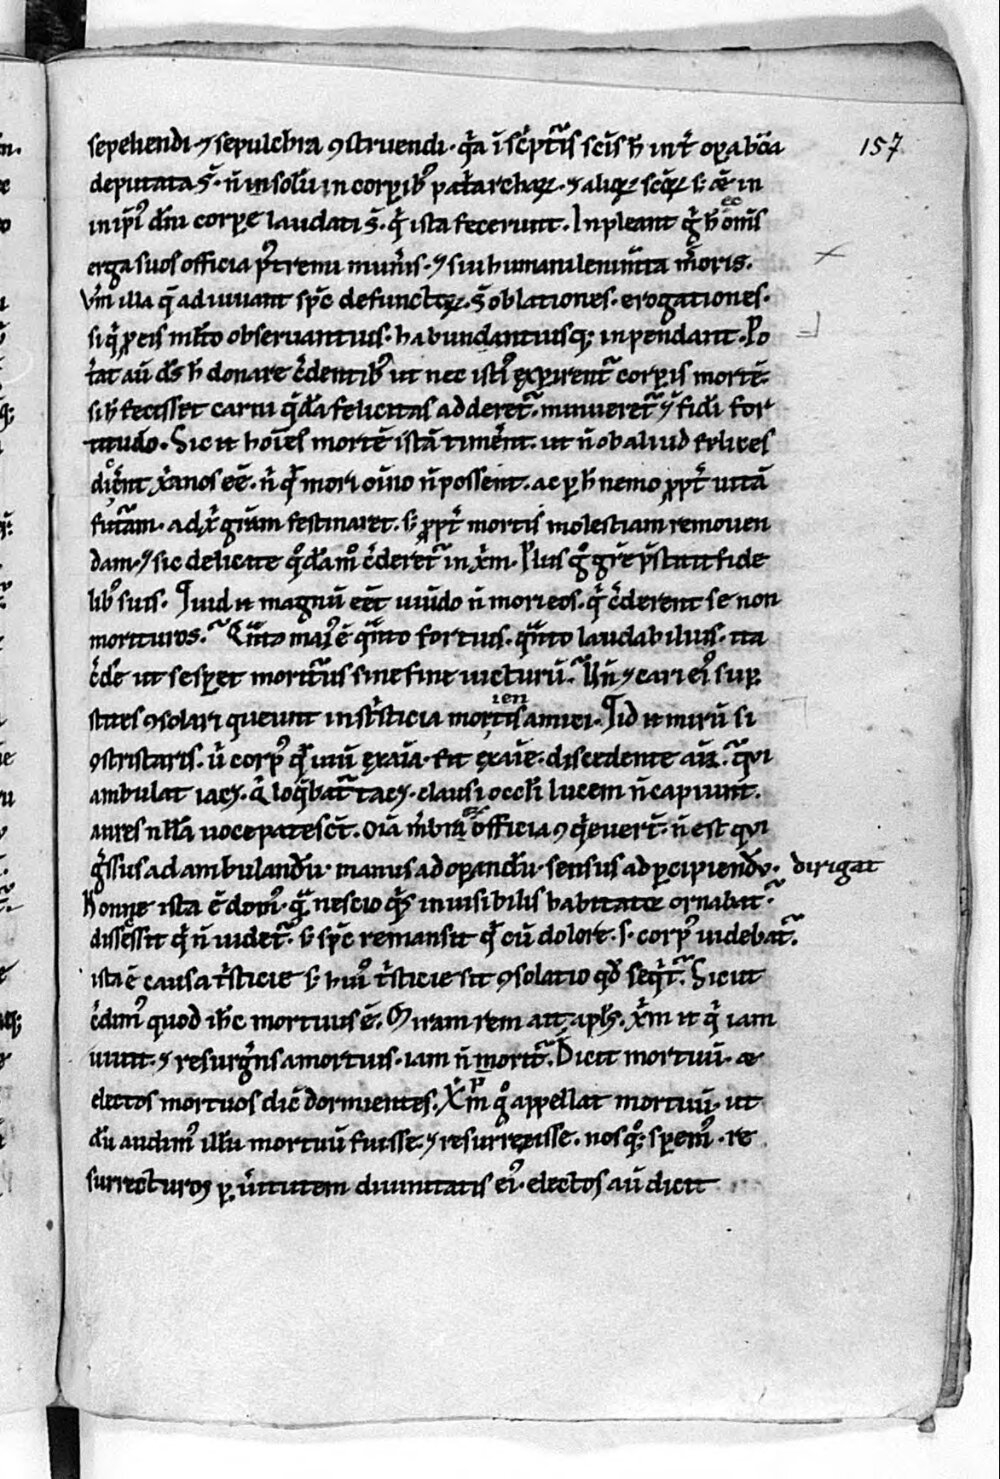 sepeliendi · ⁊ sepulchra ꝯstruendi · q̇a ī sc̓ptūis scīs h̄ int̓ oꝑa bōa
157
deputata s̄ · n̄ in solū in corꝑibꝰ pat̓archaꝝ · ⁊ alioꝝ scōꝝ s̄ ⁊ in
in ip̄iꝰ dn̄i corꝑe laudati s̄ · q̇ ista fecerunt . Inpleant g̊ h̄ om̄s
erga suos officia postremi mun̄is · ⁊ sui humani lenim̄ta m̄oris .
Vm̄ illa q̄ adiuuant sp̄c defunctoꝝ · s̄ oblationes · erogationes ·
si q̇ ꝓ eis m̄lto obseruantius · habundantiusq; inpendant . Po
t̓at aū ds̄ h̄ donare c̓dentibꝰ ut nec istiꝰ exꝑirent᷑ corꝑis mortē ·
si h̄ fecisset carni q̄dā felicitas adderet᷑ . minueret᷑ ⁊ fidi for
titudo . Sic n̄ hoīes mortē istā timēnt · ut n̄ ob aliud felices
dic̓ent xp̄ianos eē . n̄ q̇ mori oīno n̄ possent . ac ꝑ h̄ nemo ꝓpt̓ uitā
futām . ad x̄i gr̄am festinaret . s̄ ꝓpt̓ mortis molestiam remouen
dam · ⁊ sic delicate q̊dāmō c̓deret᷑ in x̄m . Plus g̊ gr̄e p̄stitit fide
libꝰ suis . Quid n̄ magnū eēt uiuēdo n̄ mori eos · q̇ c̓derent se non
morituros . Quāto maiꝰ ē quāto fortius · quāto laudabilius · ita
c̓de ut se sꝑet morit᷑us sine fine uicturū . Un̄ ⁊ cari eiꝰ sup
stites ꝯsolari queunt in t̓sticia morientis amici . Quid n̄ mirū si
ꝯtristaris . ū corpꝰ q̇ uiuū ex aīa · fit exaīe · discedente aīa . qui
ambulat iac; . q̇ loq̄bat᷑ tac; · clausi oculi lucem n̄ capiunt .
aures nll̄a uoce patesc̄t . oīa mēbra officia ꝯq̇euer̄t . n̄ est qui
g̓ssus ad ambulandū · manus ad oꝑandū · sensus ad ꝑcipiendū · dirigat
Nonne ista ē domꝰ · quā nescio q̇s inuisibilis habitator ornabat ·
discessit q̇ n̄ uidet᷑ . s̄ sp̄c remansit q̇ cū dolore · s · corpꝰ uidebat᷑ .
ista ē causa t̓sticie s̄ huiꝰ t̓sticie sit ꝯsolatio qd̄ seq̇t᷑ . Sicut
c̓dimꝰ quod ih̄c mortuus ē . Miram rem ait apl̄s . x̄m n̄ q̇ iam
uiuit · ⁊ resurg̓ns a mortuis · iam n̄ morit᷑ . Dicit mortuū · ⁊
electos mortuos dic̄ dormientes . X̄m g̊ appellat mortuū · ut
dū audim̄ꝰ illū mortuū fuisse · ⁊ resurrexisse . nos q̊; sꝑemꝰ · re
surrecturos ꝑ u̓tutem diuinitatis eiꝰ · electos aū dicit